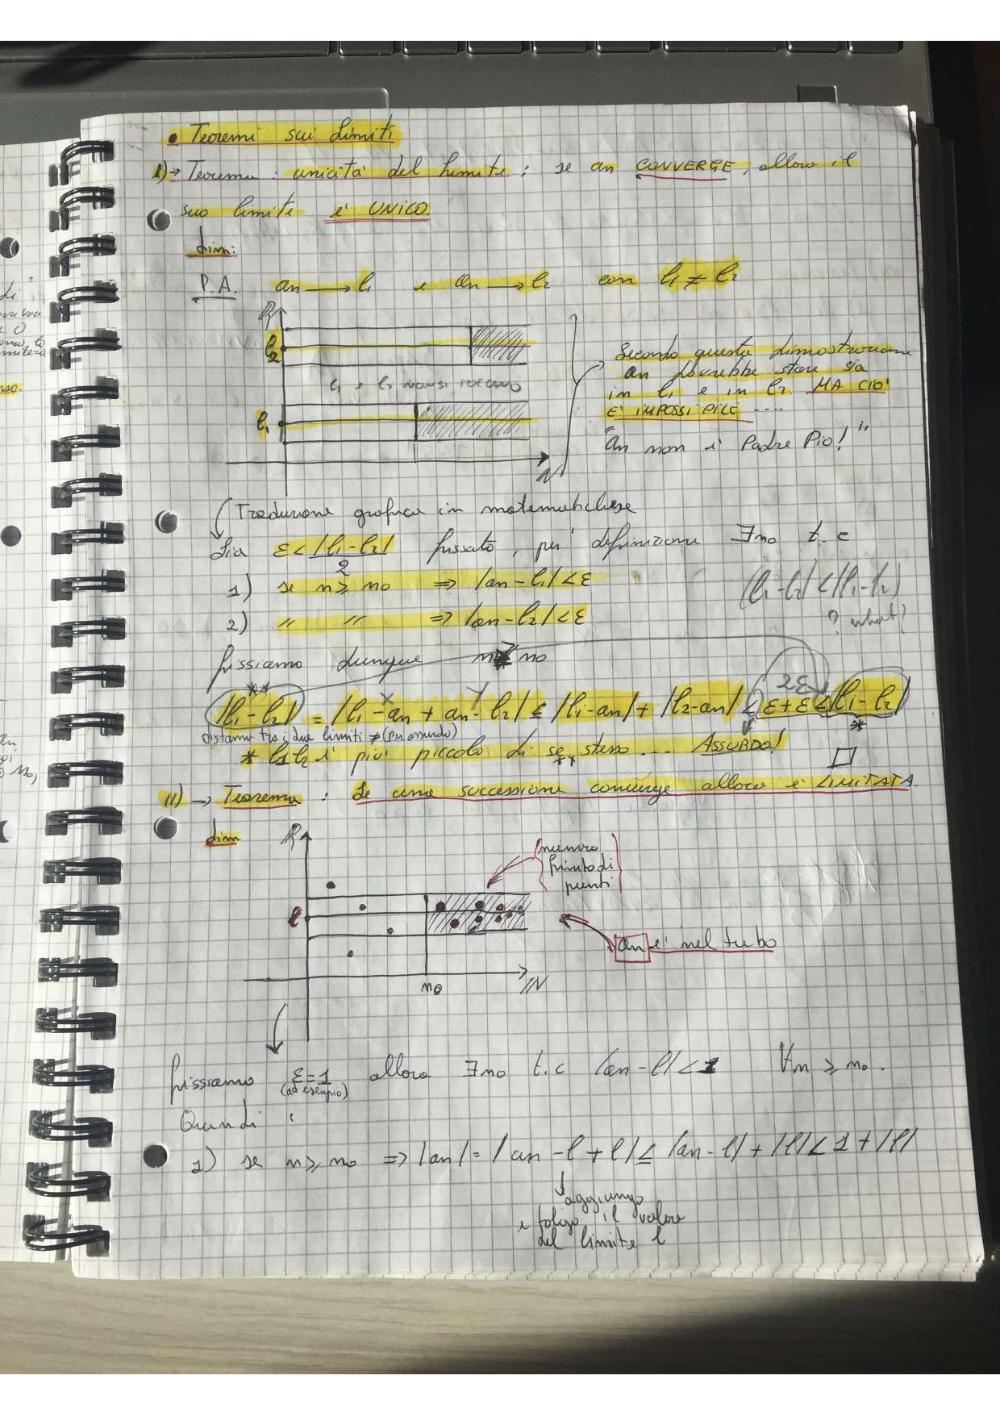 • Teoremi sui Limiti
1)→ Teorema : unicità del limite : se an CONVERGE, allora il
suo limite è UNICO.
dim:
P.A. an → l1 e an → l2 con l1 ≠ l2
R
l2
l1 e l2 non si toccano
l1
N
Secondo questa dimostrazione
an potrebbe stare sia
in l1 e in l2 MA CIÒ
È IMPOSSIBILE ....
"an non è Padre Pio!"
Traduzione grafica in matematichese
Sia ε < |l1-l2|/2 fissato, per definizione ∃no t.c
1) se n ≥ no ⇒ |an-l1| < ε
2) " " ⇒ |an-l2| < ε
|l1-l2| < |l1-l2|
? what!
fissiamo dunque n ≥ no
** x y 2ε
|l1-l2| = |l1-an + an-l2| ≤ |l1-an| + |l2-an| < ε+ε < |l1-l2|
distanza tra i due limiti ≠ (per assurdo) *
* l1 l2 è più piccolo di se stesso ... ASSURDO! □
**
11) → Teorema : Se una successione converge allora è LIMITATA.
dim
R
numero
finito di
punti
l
an è nel tubo
no
N
fissiamo ε=1 allora ∃no t.c |an-l| < 1 ∀n ≥ no.
(ad esempio)
Quindi :
1) se n ≥ no ⇒ |an| = |an - l + l| ≤ |an-l| + |l| < 1 + |l|
↓ aggiungo
e tolgo il valore
del limite l